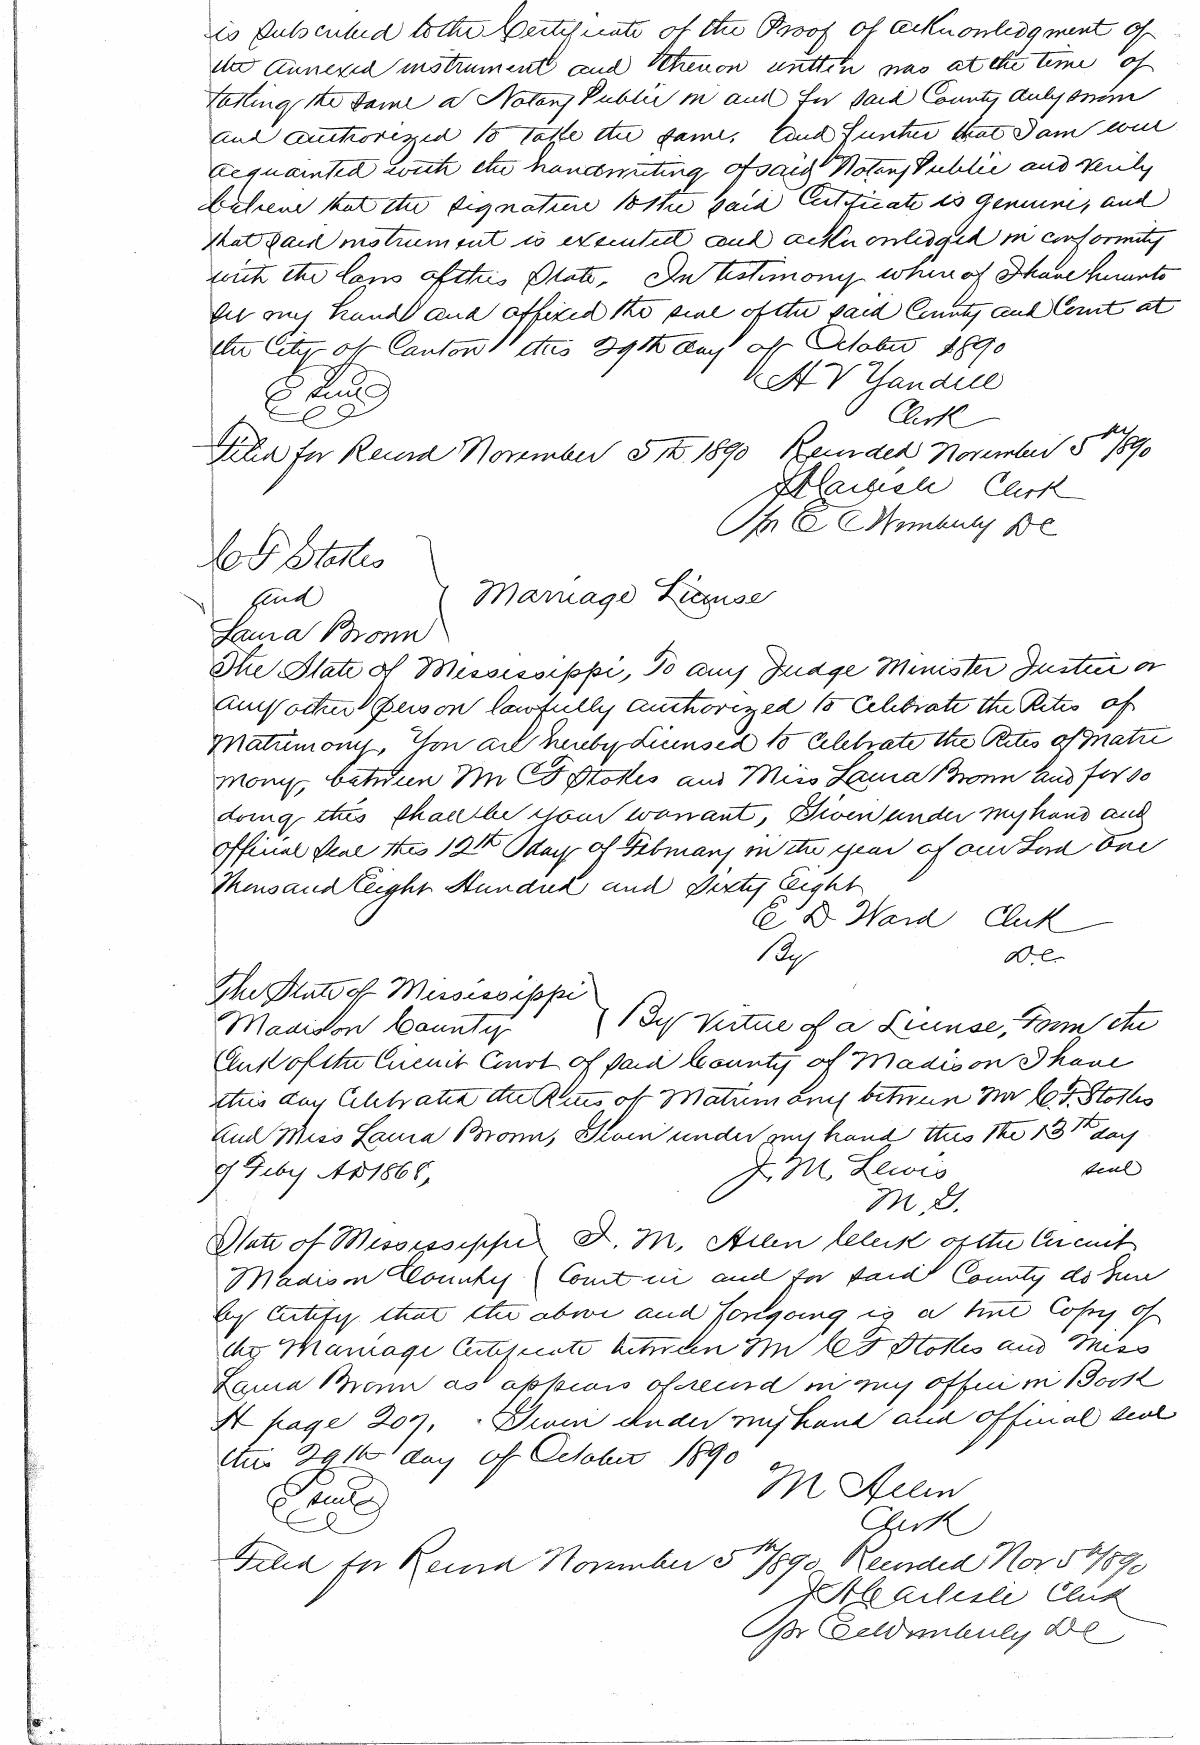 is subscribed to the Certificate of the Proof of acknowledgment of
the annexed instrument and thereon written was at the time of
taking the same a Notary Public in and for said County duly sworn
and authorized to take the same. And further that I am well
acquainted with the handwriting of said Notary Public and verily
believe that the signature to the said Certificate is genuine, and
that said instrument is executed and acknowledged in conformity
with the laws of this State. In testimony where of I have hereunto
set my hand and affixed the seal of the said County and Court at
the City of Canton this 29th day of October 1890
Seal H V Yandell
Clerk
Filed for Record November 5th 1890 Recorded November 5th/890
Carlisle Clerk
pr E C Wimberly DC
C F Stokes
and Marriage License
Laura Brown
The State of Mississippi, To any Judge Minister Justice or
any other person lawfully authorized to Celebrate the Rites of
Matrimony, You are hereby Licensed to Celebrate the Rites of Matri
mony, between Mr C F Stokes and Miss Laura Brown and for so
doing this shall be your warrant, Given under my hand and
official seal this 12th day of February in the year of our Lord One
Thousand Eight Hundred and Sixty Eight
E D Ward Clerk
By D.C.
The State of Mississippi
Madison County By Virtue of a License, from the
Clerk of the Circuit Court of said County of Madison I have
this day Celebrated the Rites of Matrimony between Mr C.F. Stokes
and Miss Laura Brown, Given under my hand this the 13th day
of Feby AD 1868, J. M. Lewis seal
M. G.
State of Mississippi I. M. Allen Clerk of the Circuit
Madison County Court in and for said County do here
by Certify that the above and foregoing is a true Copy of
the Marriage Certificate between Mr C F Stokes and Miss
Laura Brown as appears of record in my office in Book
A page 207. Given under my hand and official seal
this 29th day of October 1890
Seal M Allen
Clerk
Filed for Record November 5th/890 Recorded Nov 5th/890
Carlisle Clerk
pr E C Wimberly DC